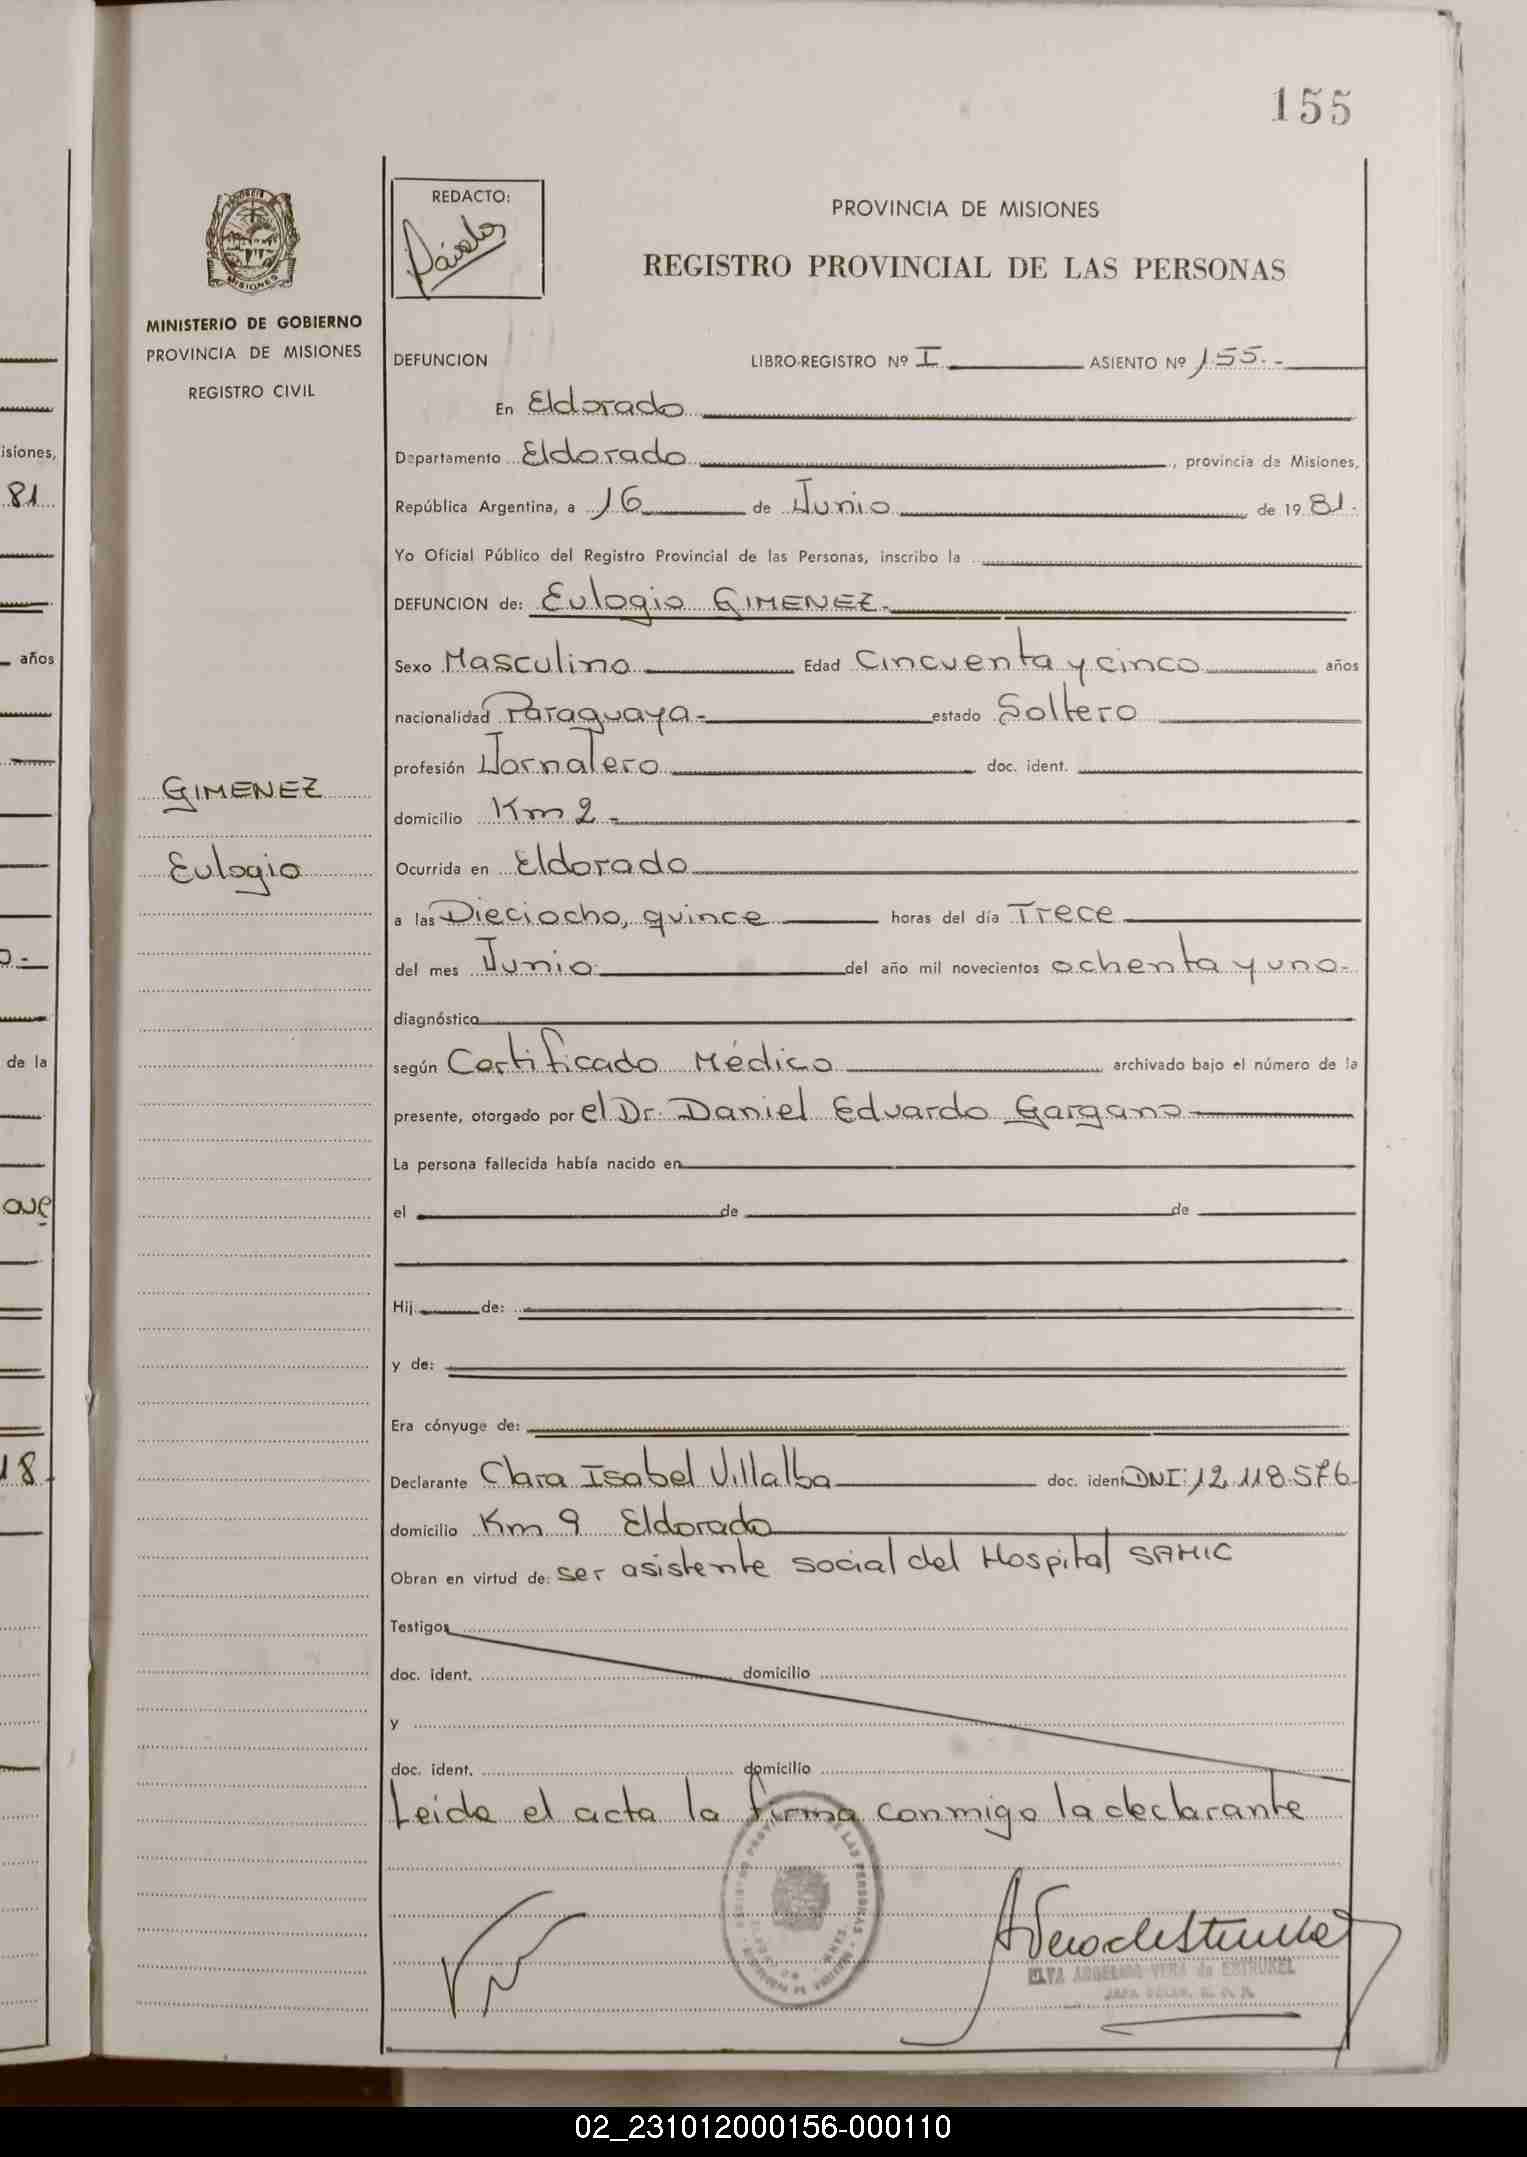 155
REDACTO:
PROVINCIA DE MISIONES
REGISTRO PROVINCIAL DE LAS PERSONAS
MISIONES
MINISTERIO DE GOBIERNO
PROVINCIA DE MISIONES
REGISTRO CIVIL
DEFUNCION LIBRO-REGISTRO Nº I ASIENTO Nº 155.-
En Eldorado
Departamento Eldorado, provincia de Misiones,
República Argentina, a 16 de Junio de 1981.
Yo Oficial Público del Registro Provincial de las Personas, inscribo la
DEFUNCION de: Eulogio GIMENEZ.
Sexo Masculino Edad Cincuenta y cinco años
nacionalidad Paraguaya- estado Soltero
profesión Jornalero doc. ident.
GIMENEZ
domicilio Km 2-
Eulogio
Ocurrida en Eldorado
a las Dieciocho, quince horas del día Trece
del mes Junio del año mil novecientos ochenta y uno-
diagnóstico
según Certificado Médico archivado bajo el número de la
presente, otorgado por el Dr. Daniel Eduardo Gargano
La persona fallecida había nacido en
el de de
Hij de:
y de:
Era cónyuge de:
Declarante Clara Isabel Villalba doc. ident DNI: 12.118.576-
domicilio Km 9 Eldorado
Obran en virtud de: ser asistente social del Hospital SAMIC
Testigos
doc. ident. domicilio
y
doc. ident. domicilio
Leida el acta la firma conmigo la declarante
isiones,
81
años
de la
que
18
02_231012000156-000110